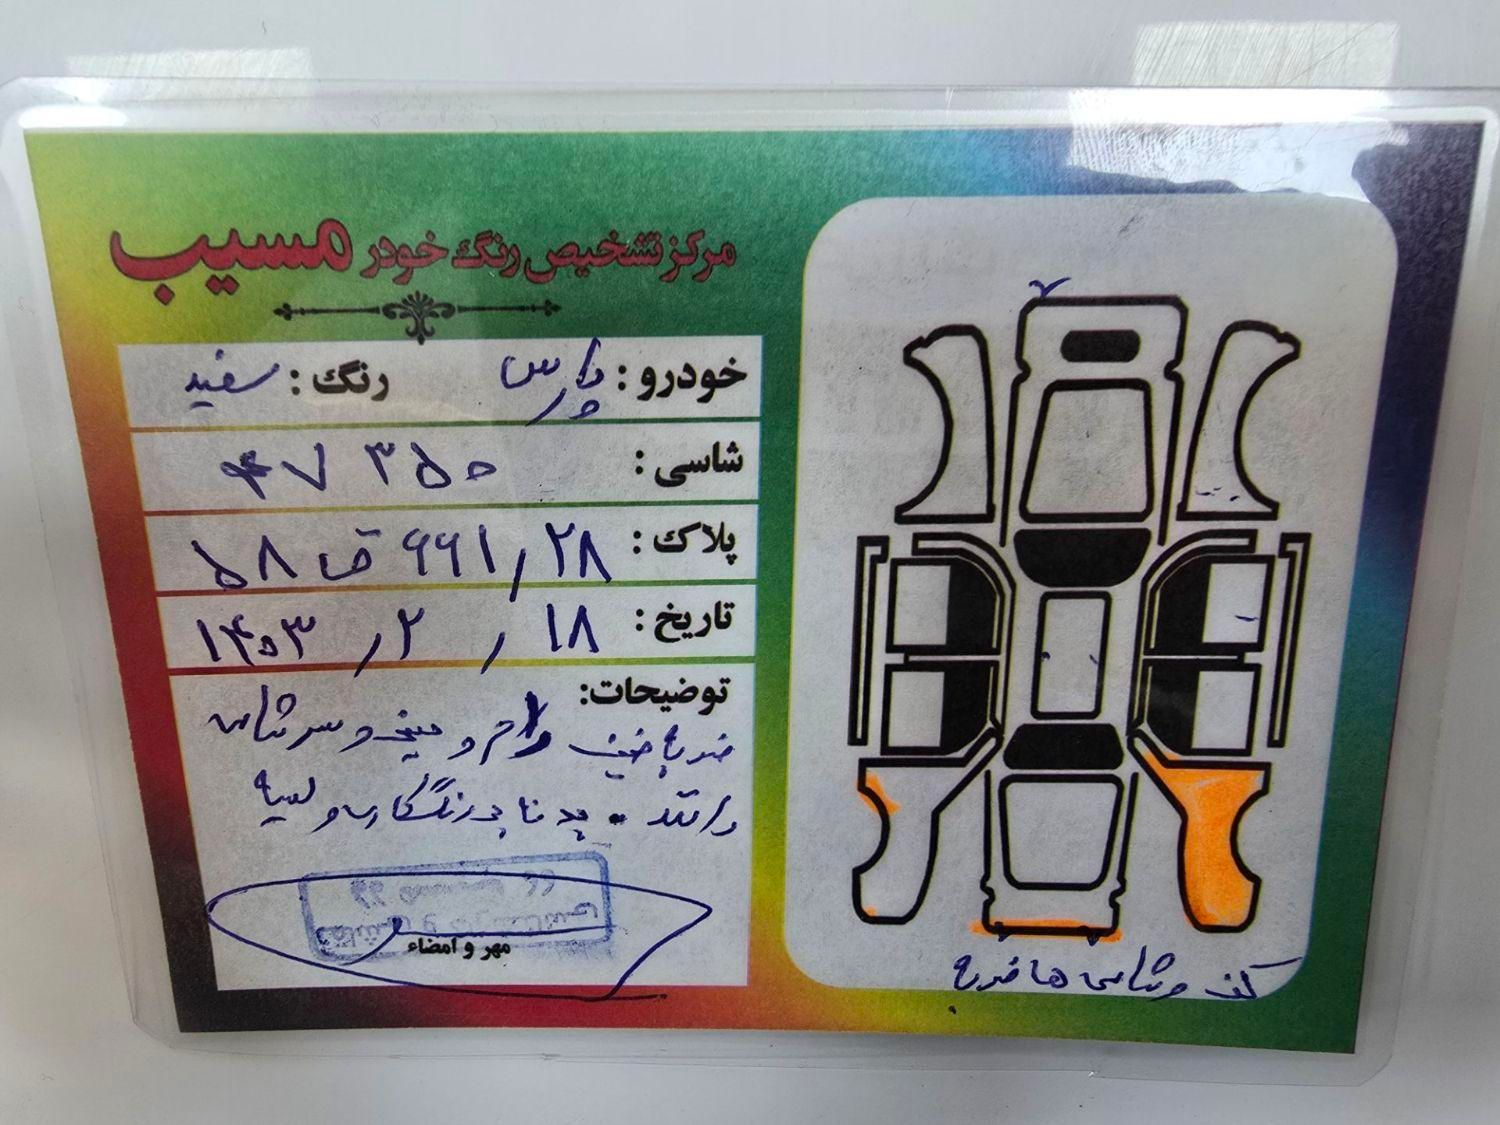 مرکز تشخیص رنگ خودر مسیب
خودرو : پارس رنگ : سفید
شاسی : ۴۷ ۳۵۰
پلاک : ۲۸ / ۶۶۱ ق ۵۸
تاریخ : ۱۸ / ۲ / ۱۴۰۳
توضیحات:
ضربه خفیف رام و سینی و سر شاسی
داشته . بدنه رنگکاری و لیسه
مهر و امضاء
کف و شاسی ها ضربه